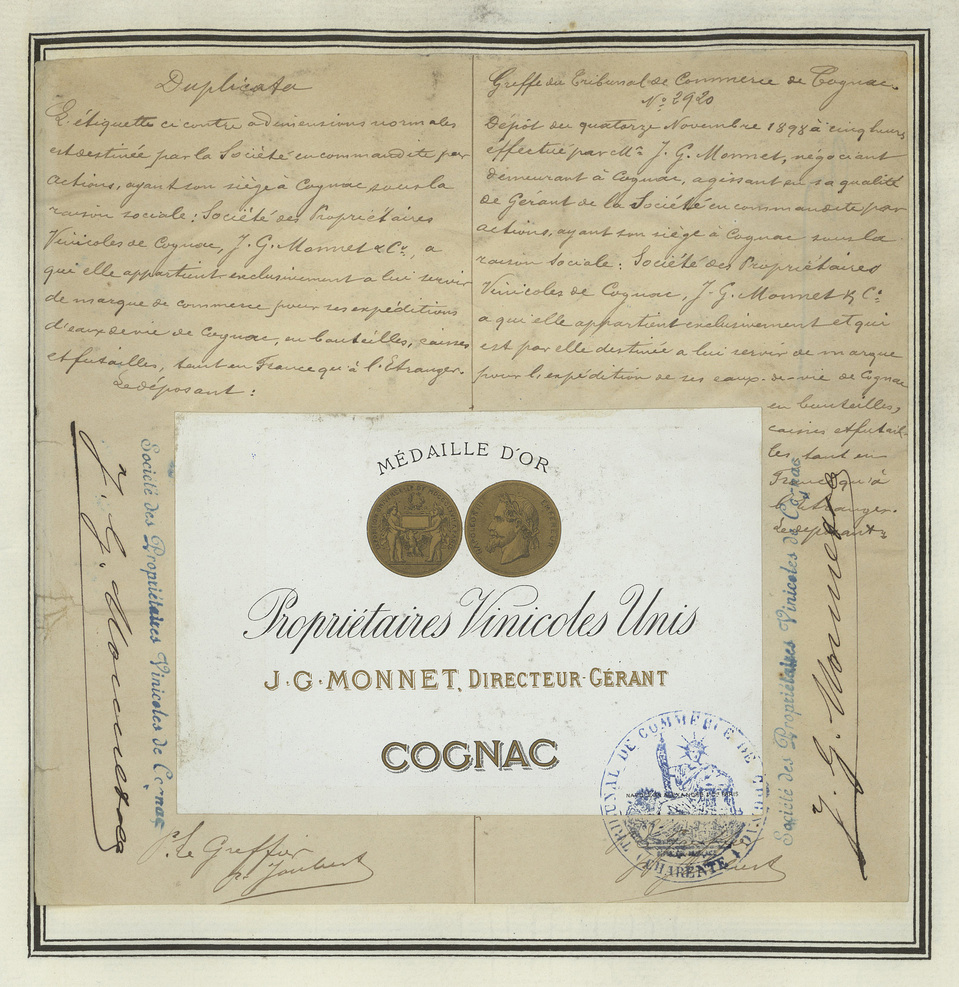 Duplicata
L'étiquette ci contre a dimensions normales
est destinée par la Société en commandite par
actions, ayant son siège à Cognac sous la
raison sociale: Société des Propriétaires
Vinicoles de Cognac, J. G. Monnet & Cie, a
qui elle appartient exclusivement a lui servir
de marque de commerce pour ses expéditions
d'eaux de vie de Cognac, en bouteilles, caisses
et futailles, tant en France qu'à l'Etranger.
Le déposant:
J. G. Monnet & Co
Société des Propriétaires Vinicoles de Cognac
Greffe du Tribunal de Commerce de Cognac
No 2920
Dépôt du quatorze Novembre 1898 à cinq heures
effectué par Mr J. G. Monnet, négociant
demeurant à Cognac, agissant en sa qualité
de Gérant de la Société en commandite par
actions, ayant son siège à Cognac sous la
raison sociale: Société des Propriétaires
Vinicoles de Cognac, J. G. Monnet & Cie
a qui elle appartient exclusivement et qui
est par elle destinée a lui servir de marque
pour l'expédition de ses eaux-de-vie de Cognac
en bouteilles,
caisses et futail-
les tant en
France qu'à
l'Etranger.
Le déposant:
Société des Propriétaires Vinicoles de Cognac
J. G. Monnet & Co
MÉDAILLE D'OR
Propriétaires Vinicoles Unis
J·G·MONNET, DIRECTEUR-GÉRANT
COGNAC
TRIBUNAL DE COMMERCE DE COGNAC
CHARENTE
P. Le Greffier
P. Joubert